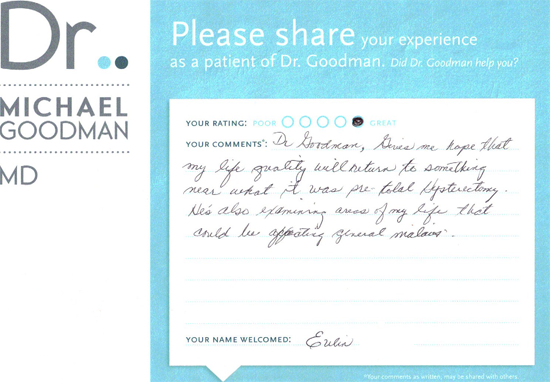 Dr..
MICHAEL
GOODMAN
MD
Please share your experience
as a patient of Dr. Goodman. Did Dr. Goodman help you?
YOUR RATING: POOR GREAT
YOUR COMMENTS*: Dr Goodman, Gives me hope that
my life quality will return to something
near what it was pre-total Hysterectomy.
He's also examining areas of my life that
could be affecting general
YOUR NAME WELCOMED:
*Your comments as written, may be shared with others.